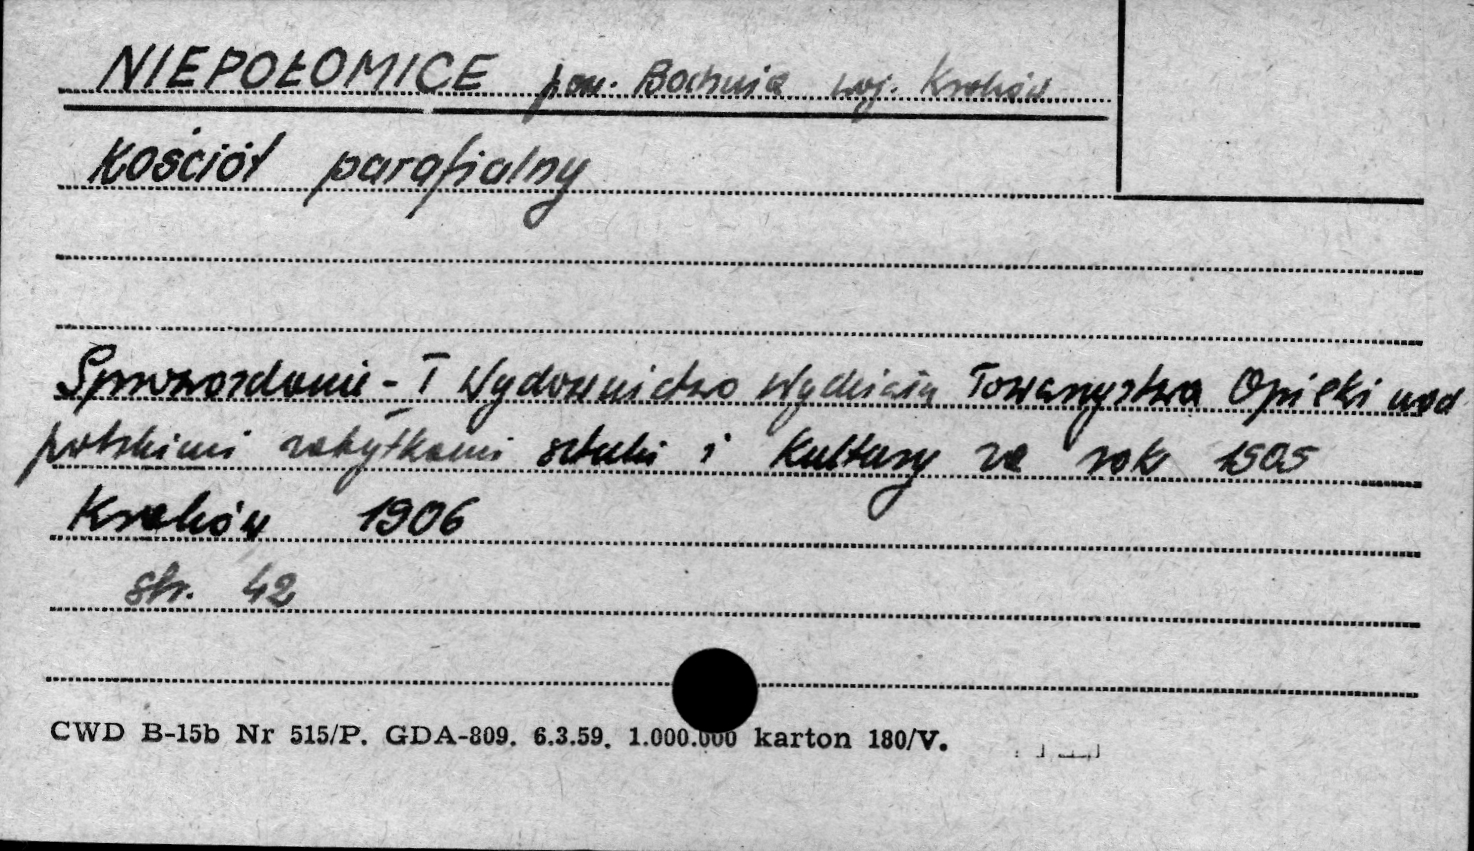 NIEPOŁOMICE pow. Bochnia woj. Kraków
Kościół parafialny
Sprawozdanie - I Wydawnictwo Wydziału Towarzystwa Opieki nad
polskimi zabytkami sztuki i Kultury za rok 1905
Kraków 1906
str. 42
CWD B-15b Nr 515/P. GDA-809. 6.3.59. 1.000.000 karton 180/V.